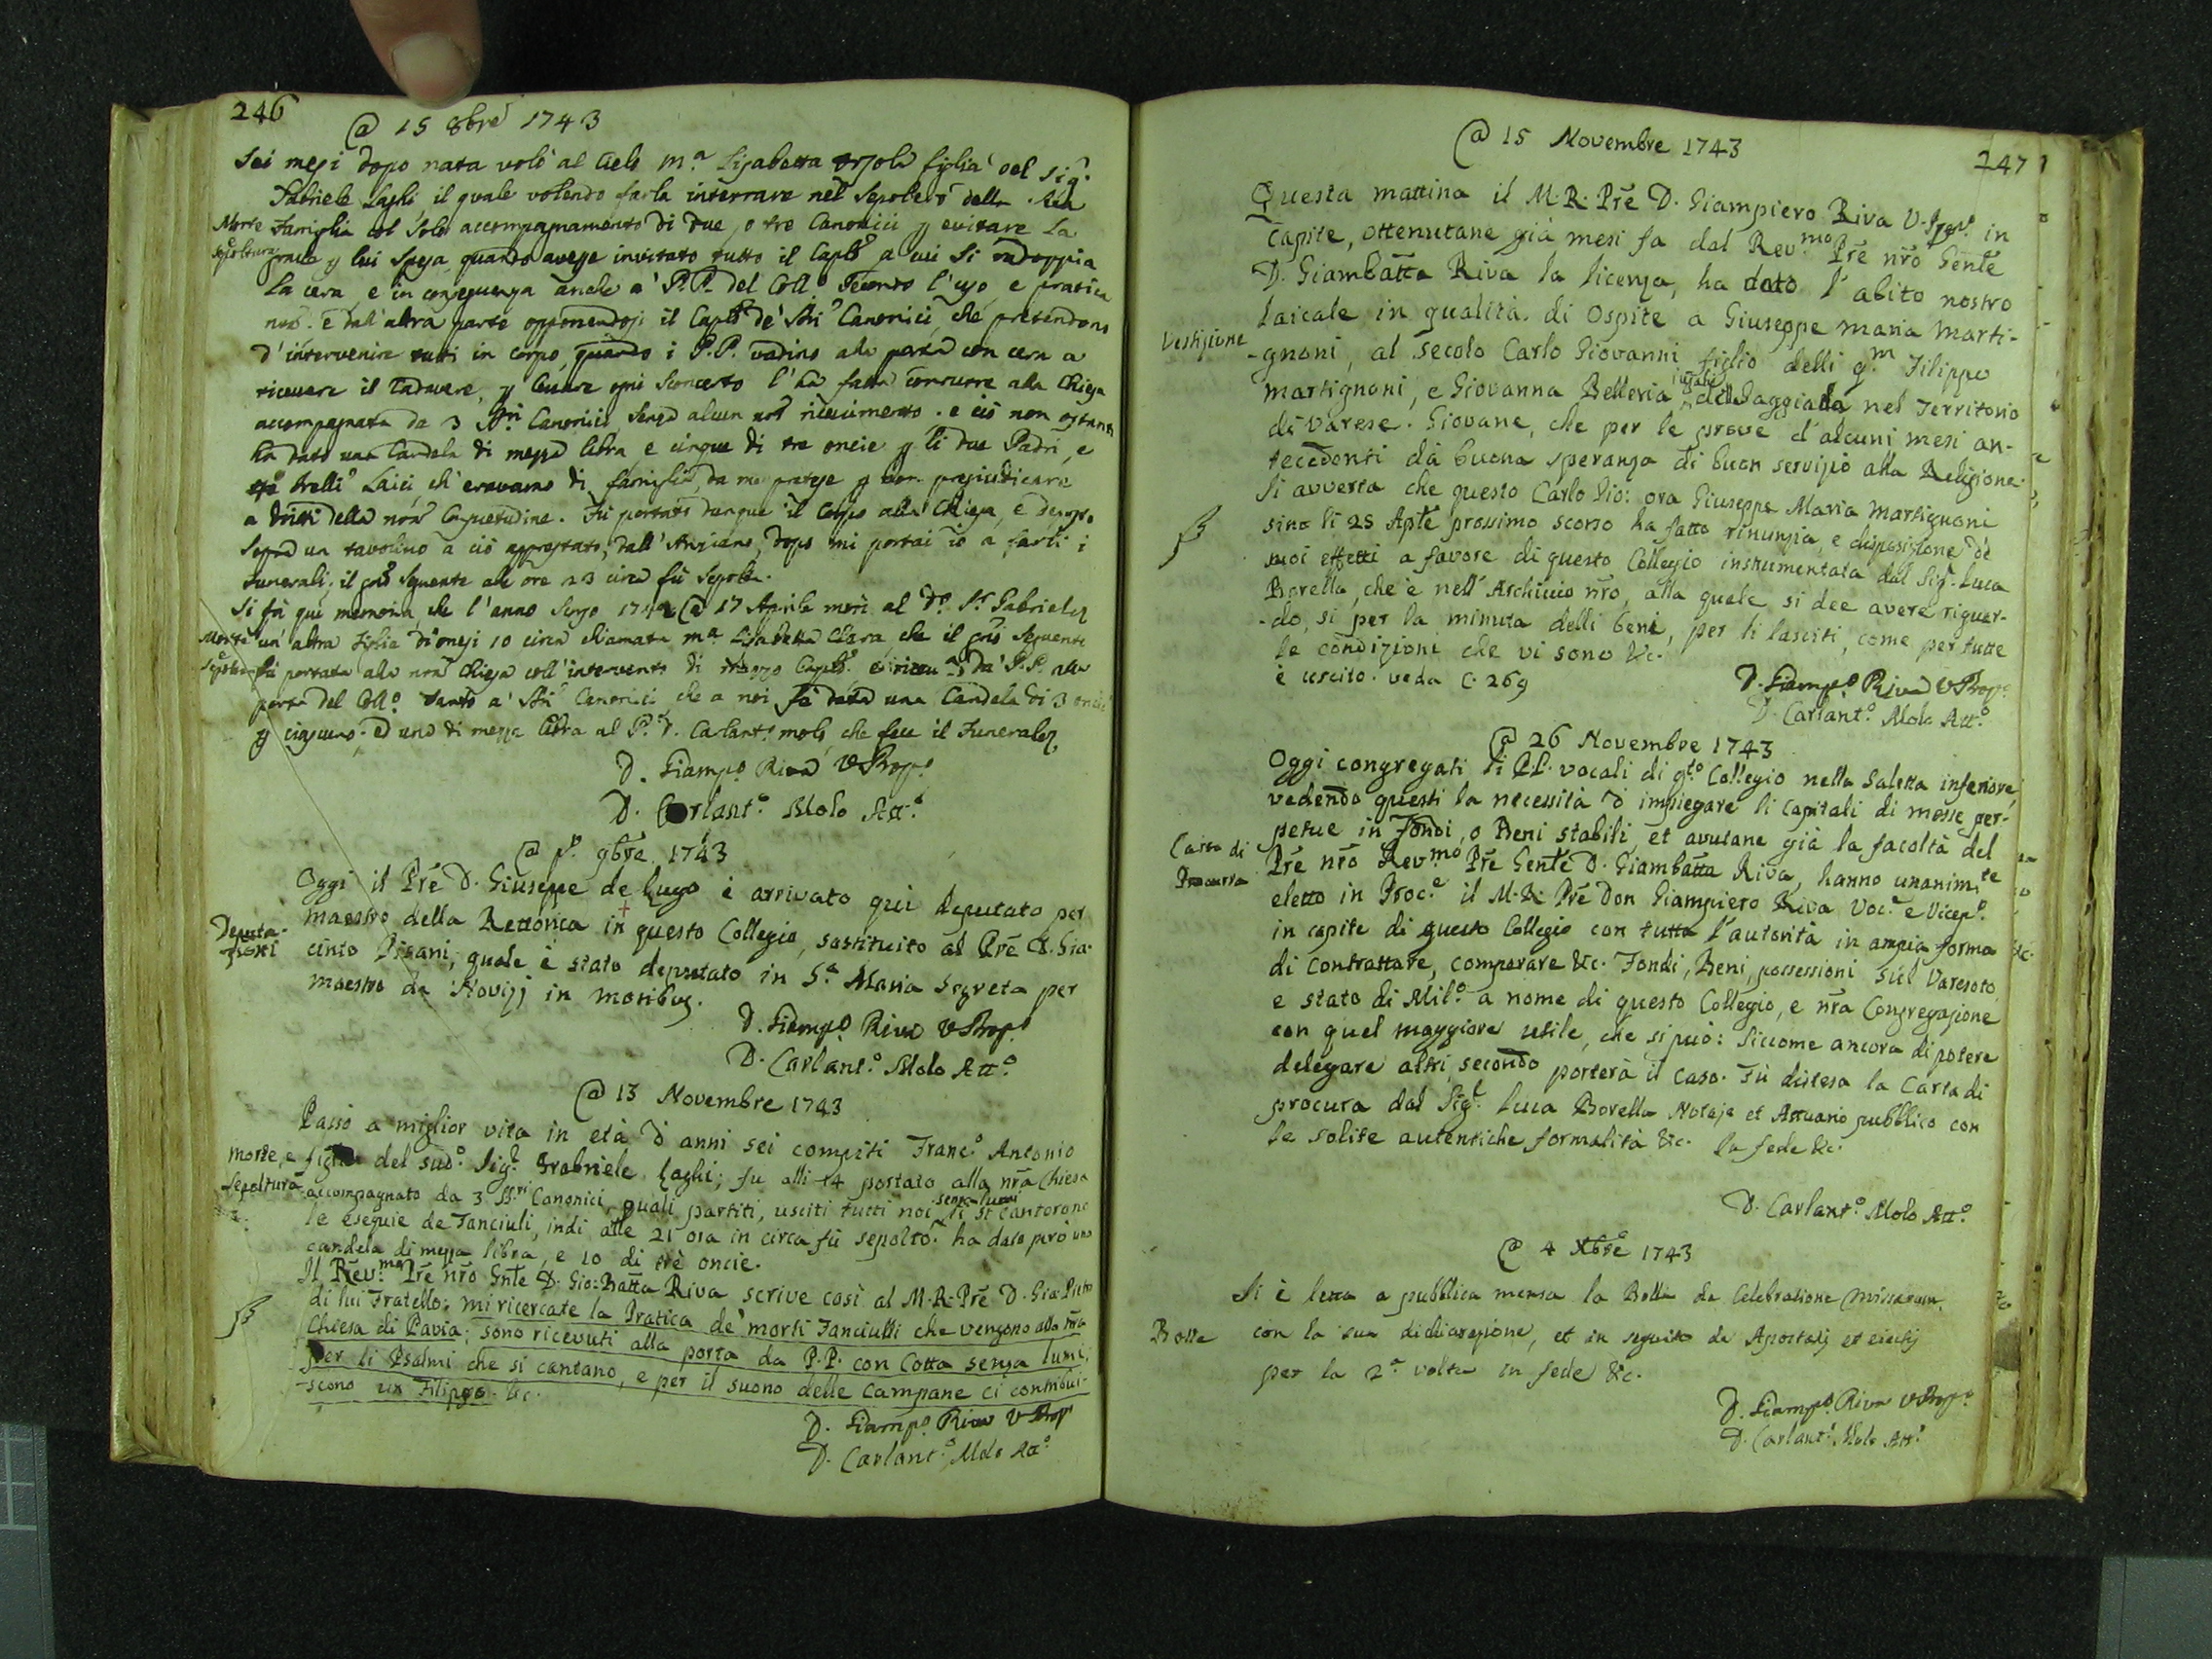 246
@ 15 8bre 1743
Sei mesi dopo nata volò al Cielo m.ª Lisabetta Orsola figlia del Sig.r
Gabriele Laghi il quale volendo farla interrare nel Sepolcro della sua
Morte Famiglia col solo accompagnamento di due, o tre Canonici p evitare la
sepoltura p lui spesa, quando avesse invitato tutto il Caplo a cui si radoppia
la cera, e in conseguenza anche a' P.P. del Coll.o secondo l'uso, e pratica
nra. e dall'altra parte opponendosi il Caplo de' SSri Canonici, che pretendono
d'intervenire tutti in corpo, quando i P.P. vadino alla porta con cera a
ricevere il Cadavere, p levare ogni sconcerto l'ha fatta condurre alla Chiesa
accompagnata da 3 SSri Canonici, senza alcun nro ricevimento. e ciò non ostante
ha dato una Candela di mezza libra, e cinque di tre oncie p li due Padri, e
tre Frelli Laici, ch'eravamo di famiglia, da me pretese p non pregiudicare
a dritti della nra Consuetudine. Fù portato dunque il Corpo alla Chiesa, e deposto
sopra un tavolino a ciò apprestato, dall'Anziano, dopo mi portai io a farli i
funerali; il gno seguente alle ore 23 circa fù sepolta.
Si fà qui memoria, che l'anno scorso 1742 @ 17 Aprile morì al do Sr Gabriele
Morte un'altra Figlia di mesi 10 circa chiamata mª Lisabetta Clara, che il gno seguente
sepoltura fù portata alla nra Chiesa coll'intervento di mezzo Caplo, e ricevuta da' P.P. alla
porta del Coll.o tanto a' SSri Canonici, che a noi fù data una Candela di 3 oncie
p ciascuno, ed una di mezza libra al P. D. Carlant.o Molo, che fece il Funerale.
D. Giamp.o Riva VProp.o
D. Carlant.o Molo Att.o
@ p.o 9bre 1743
Oggi il Prē D. Giuseppe de Lugo è arrivato qui deputato per
Deputa- maestro della Rettorica in questo Collegio, sostituito al Prē D. Gia-
zioni cinto Pisani, quale è stato deputato in S.ª Maria Segreta per
maestro de Novizj in moribus.
D. Giamp.o Riva VProp.o
D. Carlant.o Molo Att.o
@ 13 Novembre 1743
Passò a miglior vita in età d'anni sei compiti Franc.o Antonio
morte, e figlio del sud.o Sig.r Grabriele Laghi; fu alli 14 portato alla nrā Chiesa
sepoltura accompagnato da 3 SS.ri Canonici, quali partiti, usciti tutti noi senza lumi li si cantorono
le esequie de Fanciuli, indi alle 21 ora in circa fù sepolto. ha dato però una
candela di mezza libra, e 10 di trè oncie.
Il Rev.mo Prē nrō Gnle D. Gio: Batta Riva scrive così al M.R. Prē D. Gia: Pietro
di lui Fratello: mi ricercate la Pratica de' morti Fanciulli che vengono alla nrā
Chiesa di Pavia; sono ricevuti alla porta da P.P. con Cotta senza lumi;
per li Psalmi che si cantano, e per il suono delle Campane ci contribui-
-scono un Filippo. &c.
D. Giamp.o Riva VProp.o
D. Carlant.o Molo Att.o
@ 15 Novembre 1743
247
Questa mattina il M.R. Prē D. Giampiero Riva V. Prep.o in
Capite, ottenutane già mesi fa dal Rev.mo Prē nrō Gentē
D. Giambatta Riva la licenza, ha dato l'abito nostro
laicale in qualità di Ospite a Giuseppe maria Marti-
Vestizione -gnoni, al secolo Carlo Giovanni figlio delli q.m Filippo
martignoni, e Giovanna Belloria iugali di Daggiada nel Territorio
di Varese. Giovane, che per le prove d'alcuni mesi an-
tecedenti dà buona speranza di buon servizio alla Religione.
Si avverta che questo Carlo Gio: ora Giuseppe Maria Martignoni
sino li 25 Aplē prossimo scorso ha fatto rinunzia, e disposizione de
suoi effetti a favore di questo Collegio instrumentata dal Sig.r Luca
Borella, che è nell'Archivio nrō, alla quale si dee avere riguar-
-do, si per la minuta delli beni, per li lasciti, come per tutte
le condizioni che vi sono &c.
è uscito. veda C. 269
D. Giamp.o Riva VProp.o
D. Carlant.o Molo Att.o
@ 26 Novembre 1743
Oggi congregati li PP. vocali di q.to Collegio nella Saletta inferiore,
vedendo questi la necessità d'impiegare li capitali di messe per-
Carta di petue in Fondi, o Beni stabili, et avutane già la facoltà del
Procura Prē nrō Rev.mo Prē Gentē D. Giambatta Riva, hanno unanim.te
eletto in Proc.e il M.R. Prē Don Giampiero Riva Voc.e e Vicep.o
in capite di questo Collegio con tutta l'autorità in ampia forma
di contrattare, comperare &c. Fondi, Beni, possessioni sul Varesoto,
e stato di Mil.o a nome di questo Collegio, e nrā Congregazione
con quel maggiore utile, che si può: siccome ancora di potere
delegare altri, secondo porterà il caso. Fù distesa la Carta di
procura dal Sig.r Luca Borella Notajo et Attuario pubblico con
le solite autentiche formalità &c. la fede &c.
D. Carlant.o Molo Att.o
@ 4 Xbre 1743
Si è letta a pubblica mensa la Bolla de Celebratione Missarum,
Bolle con la sua dichiarazione, et in seguito de Apostatis et eiectis
per la 2.ª volta in fede &c.
D. Giamp.o Riva VProp.o
D. Carlant.o Molo Att.o